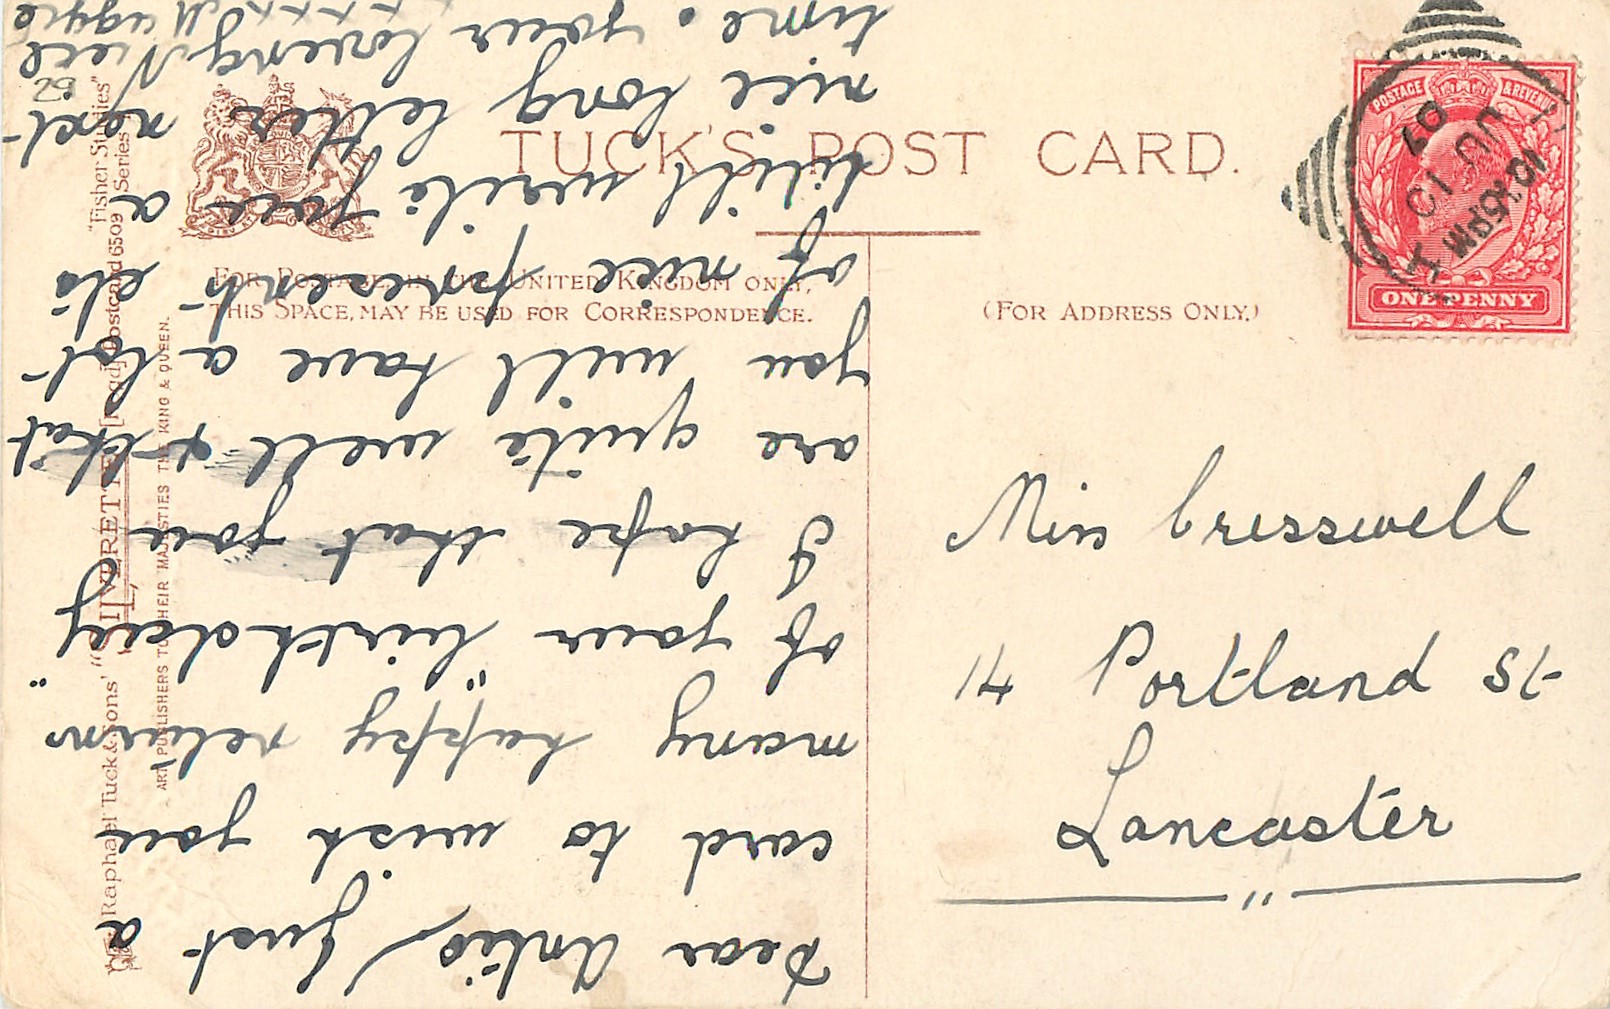 TUCK'S POST CARD.
FOR POSTAGE IN THE UNITED KINGDOM ONLY,
THIS SPACE, MAY BE USED FOR CORRESPONDENCE.
(FOR ADDRESS ONLY.)
POSTAGE & REVENUE
ONE PENNY
10.45PM
JU 10
07
Miss Cresswell
14 Portland St
Lancaster
Dear Antie/Just a
card to wish you
many happy returns
of your "birthday"
I hope that you
are quite well & that
you will have a lot
of nice presents els
I will write you a
nice long letter next
time. your loveng Niece
xxxx
29
Raphael Tuck & Sons' "OILVERETTE" [Regd] Postcard 6509
ART PUBLISHERS TO THEIR MAJESTIES THE KING & QUEEN.
"Fisher Studies"
Series